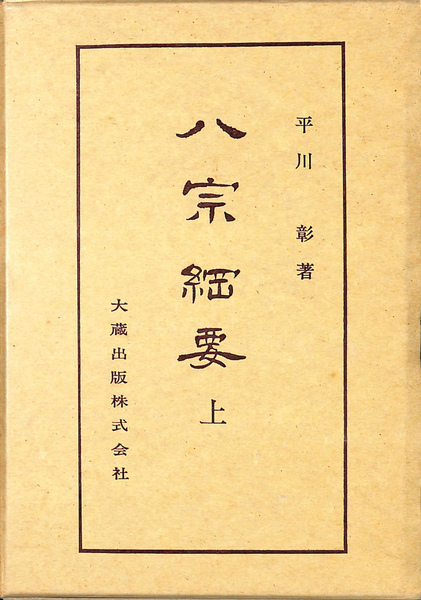 平川 彰 著
八宗綱要 上
大蔵出版株式会社